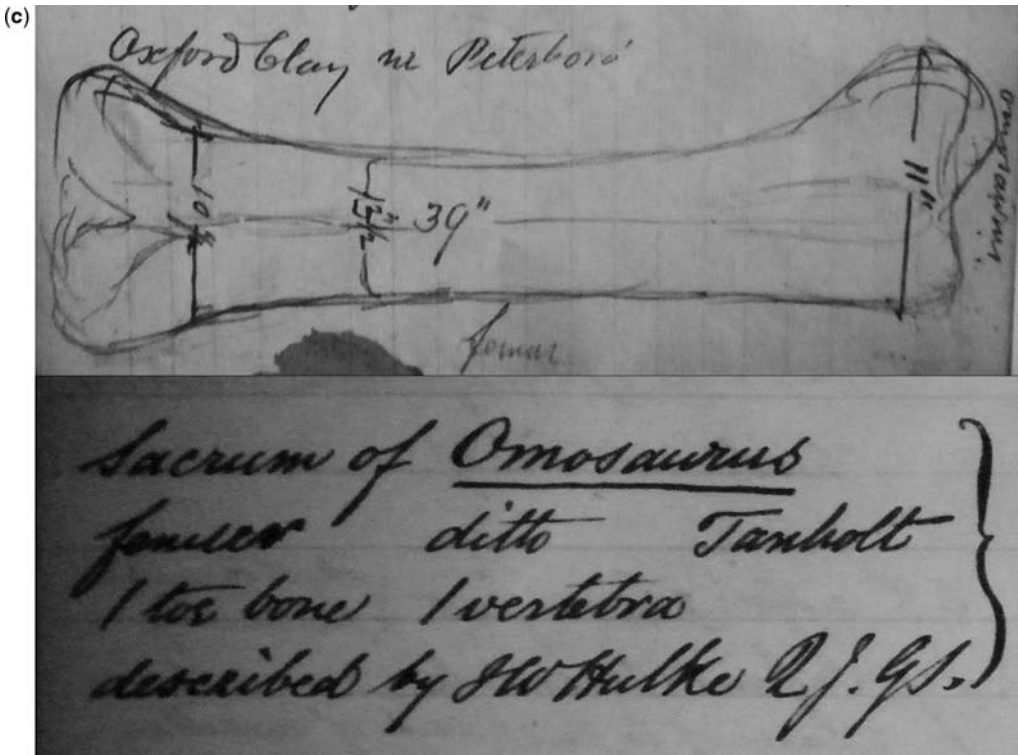 (c)
Oxford Clay nr Peterboro'
39"
11"
femur
Sacrum of Omosaurus
femur ditto Tanholt
1 toe bone 1 vertebra
described by JW Hulke Q J. GS.